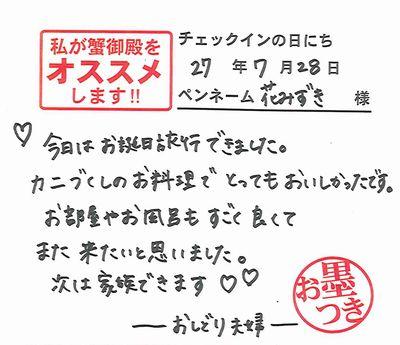 私が蟹御殿を
オススメ
します!!
チェックインの日にち
27 年 7 月 28 日
ペンネーム 花みずき 様
♡ 今日はお誕日旅行できました。
カニづくしのお料理でとってもおいしかったです。
お部屋やお風呂もすごく良くて
また来たいと思いました。
次は家族できます ♡♡
― おしどり夫婦 ―
お墨つき